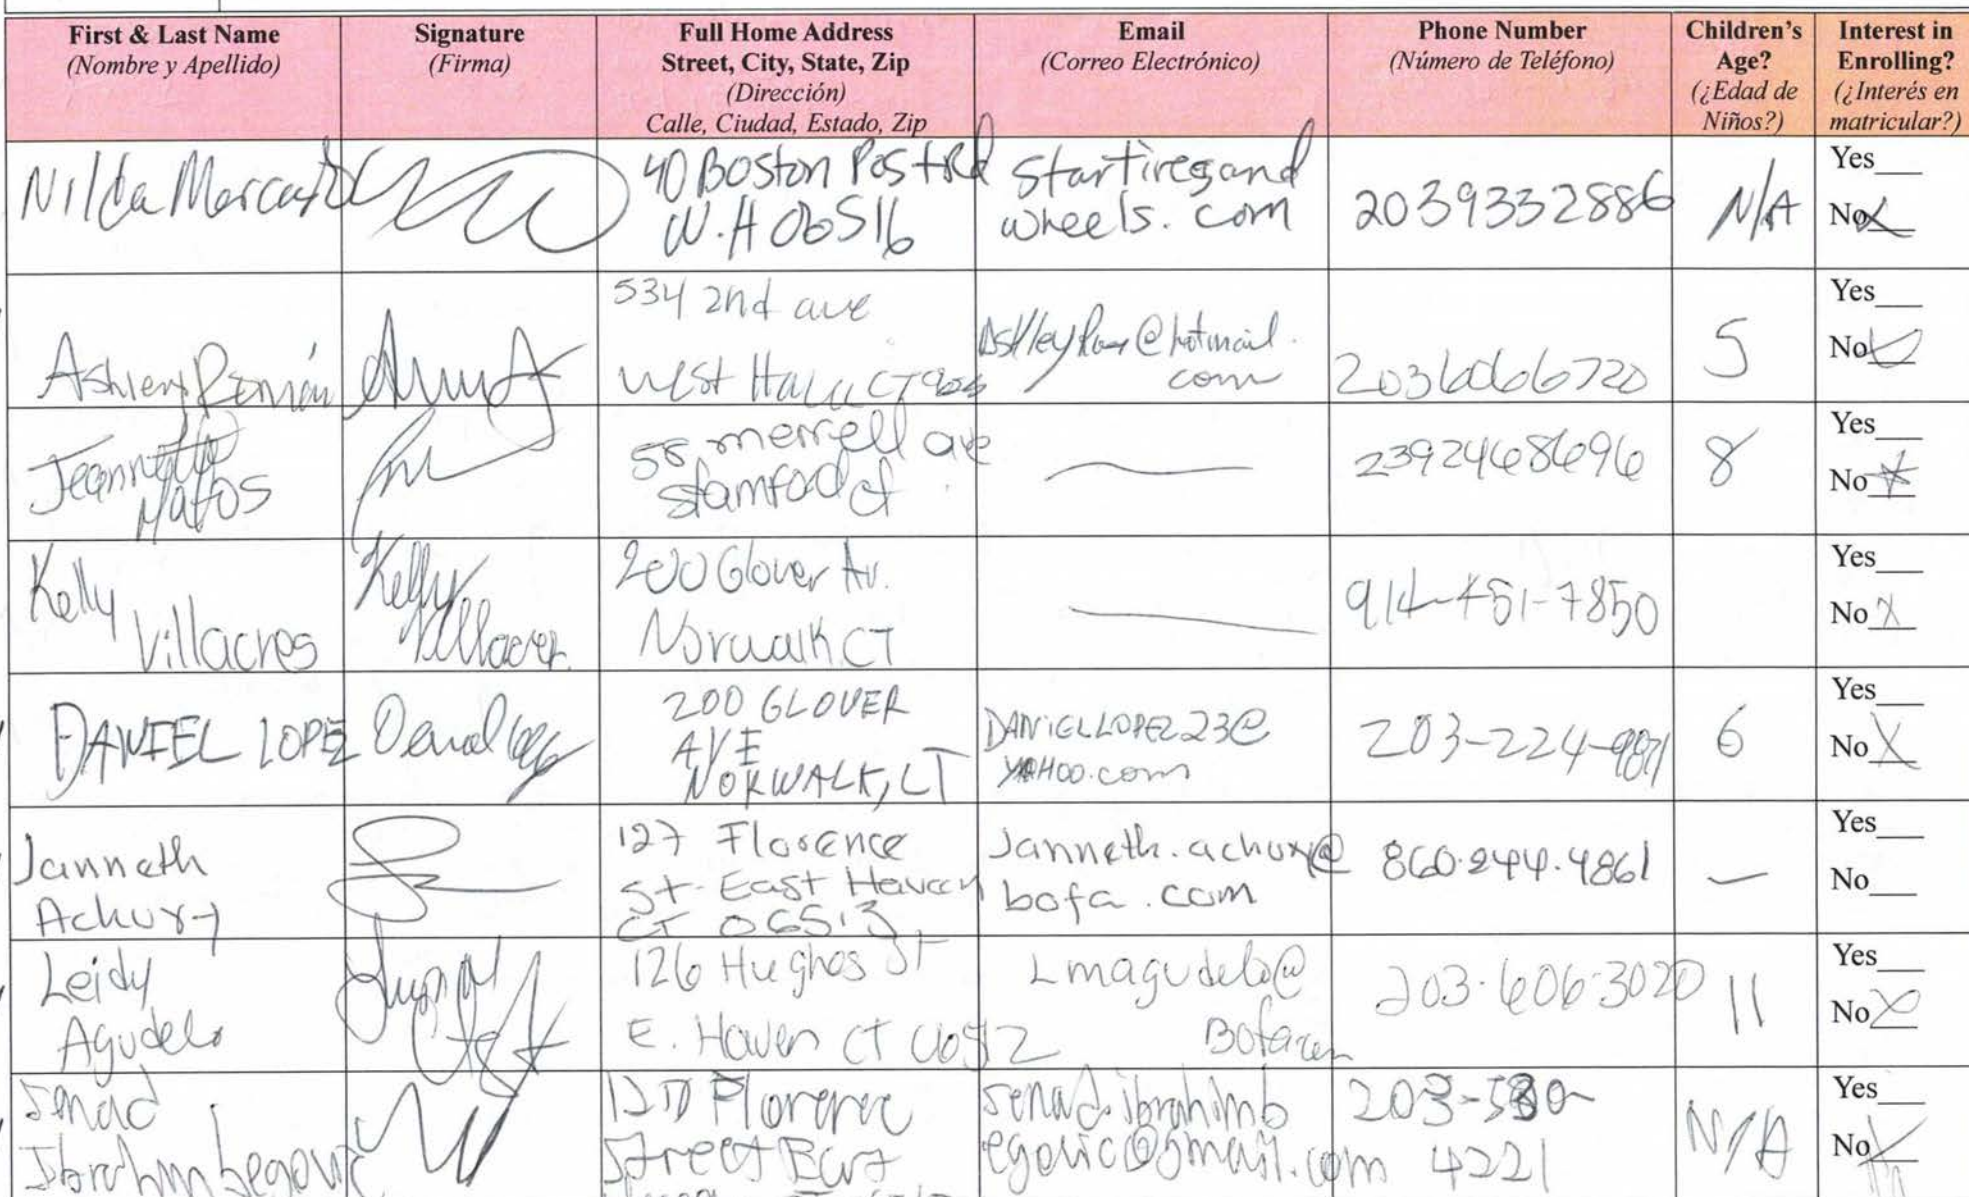 First & Last Name
(Nombre y Apellido)
Signature
(Firma)
Full Home Address
Street, City, State, Zip
(Dirección)
Calle, Ciudad, Estado, Zip
Email
(Correo Electrónico)
Phone Number
(Número de Teléfono)
Children's
Age?
(¿Edad de
Niños?)
Interest in
Enrolling?
(¿Interés en
matricular?)
Nilda Mercado
40 Boston Post Rd
W.H 06516
Startiresand
wheels.com
2039332886
N/A
Yes
No
Ashley Román
534 2nd ave
West Haven CT
@hotmail.
com
2036066720
5
Yes
No
Jeannette
Matos
58 merrell ave
stamfod ct
2392468696
8
Yes
No
Kelly
Villacres
Kelly
200 Glover Av.
Norwalk CT
914-451-7850
Yes
No X
DANIEL LOPEZ
200 GLOVER
AVE
NORWALK, CT
DANIELLOPEZ23@
YAHOO.com
203-224-
6
Yes
No X
Janneth
Achury
127 Florence
St- East Haven
CT 06513
Janneth.achury@
bofa.com
860.244.4861
Yes
No
Leidy
Agudelo
126 Hughes St
E. Haven CT
Lmagudelo@
203.606.3020
11
Yes
No X
Senad
Ibrahimbegovic
Florence
Street East
senad.ibrahimb
egovic@gmail.com
4221
N/A
Yes
No